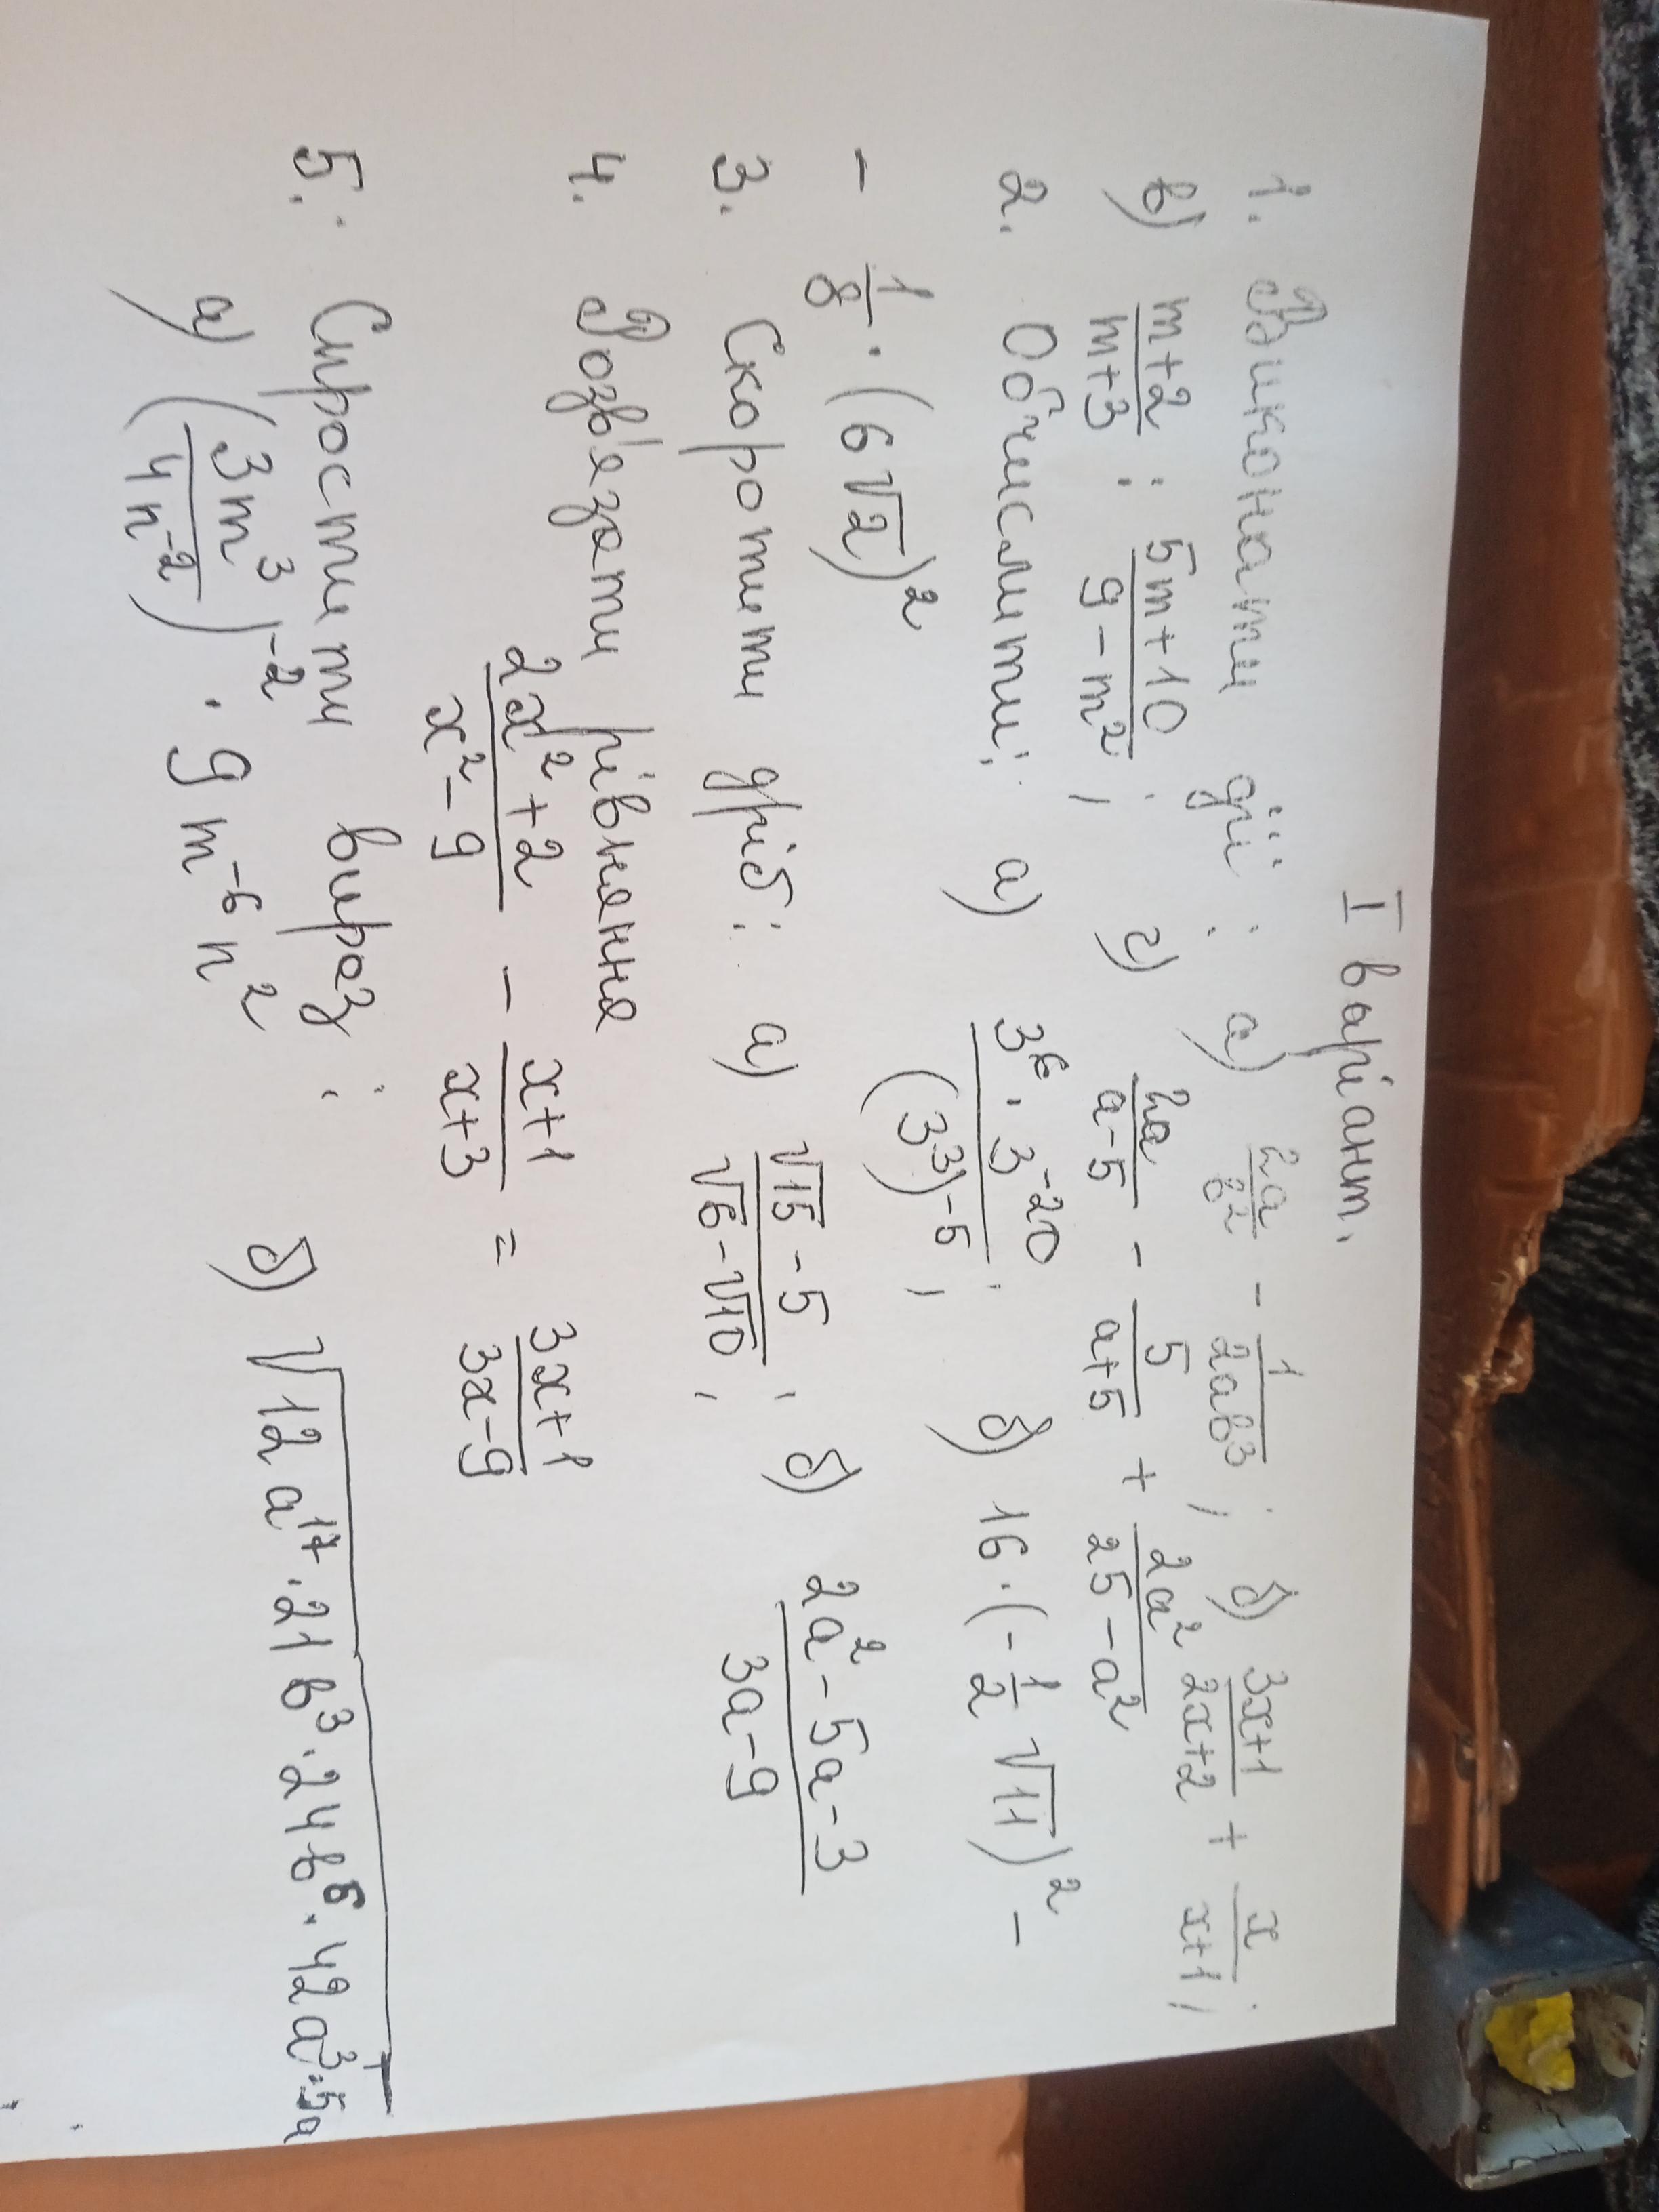 I варіант.
1. Виконати дії: а) 2a/b² - 1/2ab³; б) 3x+1/2x+2 + x/x+1;
в) m+2/m+3 : 5m+10/9-m²; г) 2a/a-5 - 5/a+5 + 2a²/25-a²
2. Обчислити: а) 3⁶·3⁻²⁰/(3³)⁻⁵; б) 16·(-1/2√11)² -
- 1/8·(6√2)²
3. Скоротити дріб: а) √15-5/√6-√10; б) 2a²-5a-3/3a-9
4. Розв'язати рівняння
2x²+2/x²-9 - x+1/x+3 = 3x+1/3x-9
5. Спростити вираз:
а) (3m³/4n⁻²)⁻²·9m⁻⁶n² б) √12a¹⁷·21b³·24b⁶·42a³·5a